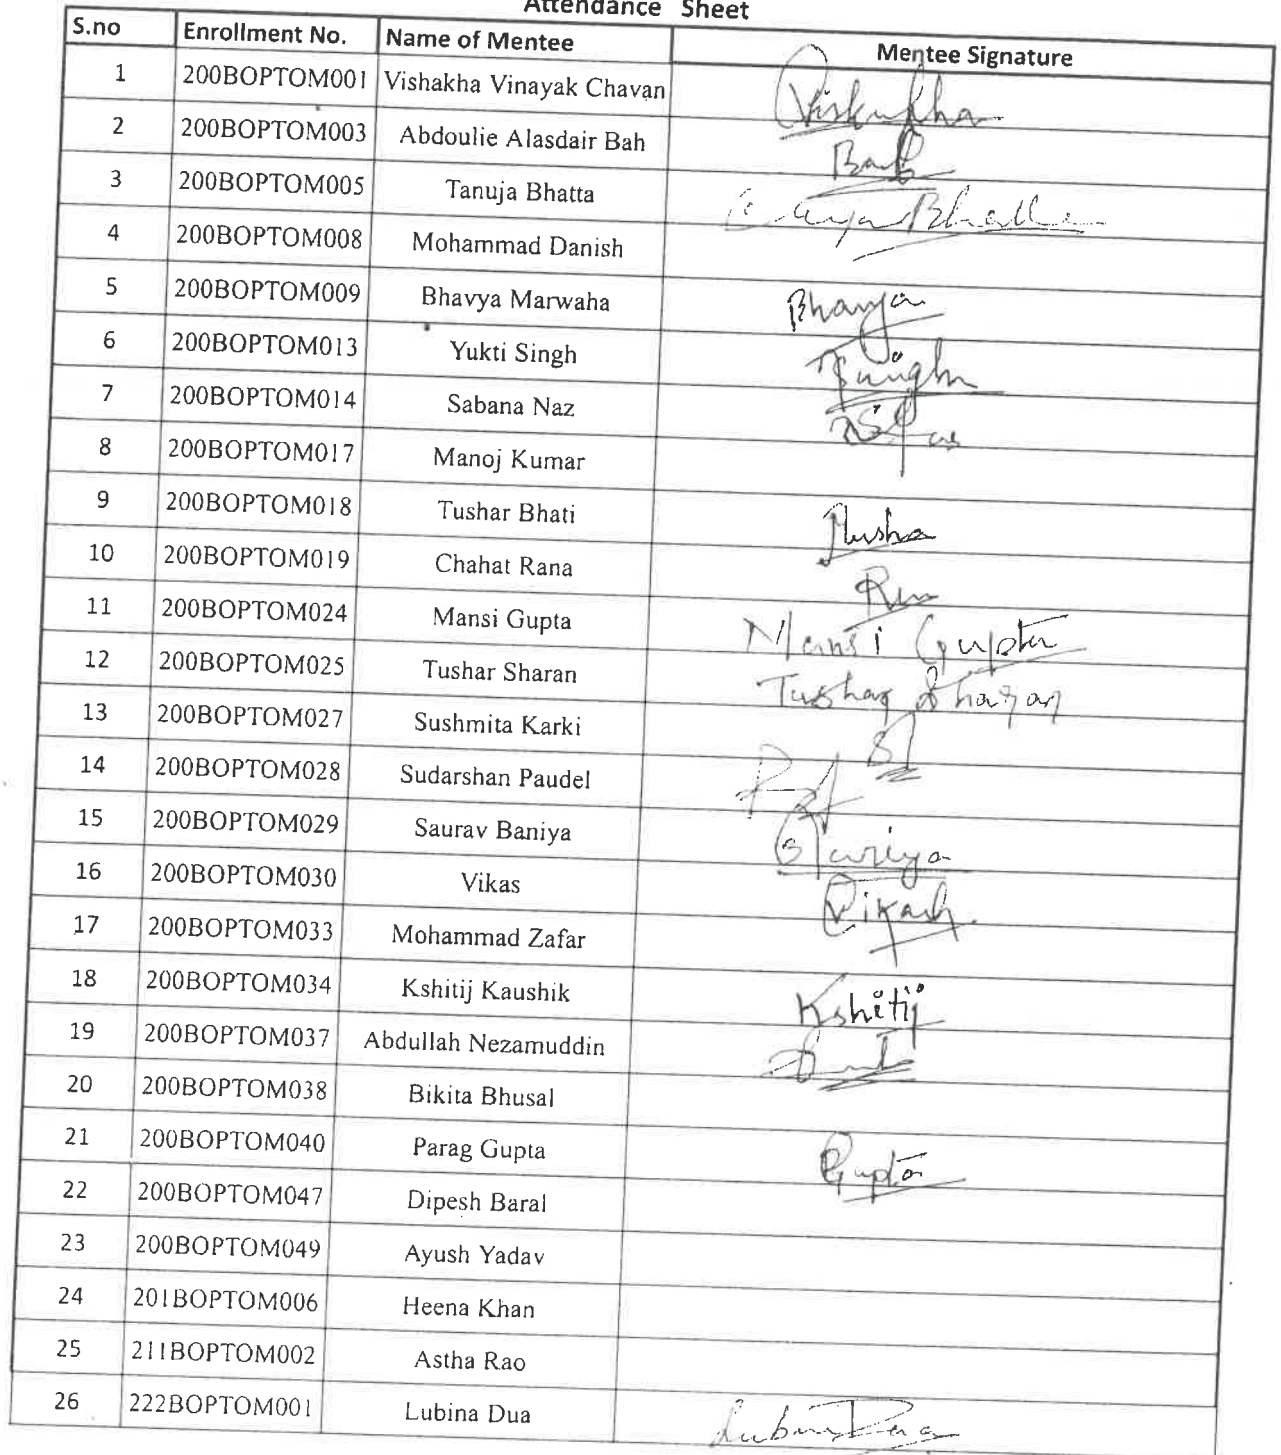 Attendance Sheet
S.no Enrollment No. Name of Mentee Mentee Signature
1 200BOPTOM001 Vishakha Vinayak Chavan Vishakha
2 200BOPTOM003 Abdoulie Alasdair Bah Bah
3 200BOPTOM005 Tanuja Bhatta
4 200BOPTOM008 Mohammad Danish
5 200BOPTOM009 Bhavya Marwaha Bhavya
6 200BOPTOM013 Yukti Singh
7 200BOPTOM014 Sabana Naz
8 200BOPTOM017 Manoj Kumar
9 200BOPTOM018 Tushar Bhati
10 200BOPTOM019 Chahat Rana
11 200BOPTOM024 Mansi Gupta Mansi Gupta
12 200BOPTOM025 Tushar Sharan Tushar Sharan
13 200BOPTOM027 Sushmita Karki
14 200BOPTOM028 Sudarshan Paudel
15 200BOPTOM029 Saurav Baniya
16 200BOPTOM030 Vikas Vikash
17 200BOPTOM033 Mohammad Zafar
18 200BOPTOM034 Kshitij Kaushik Kshitij
19 200BOPTOM037 Abdullah Nezamuddin
20 200BOPTOM038 Bikita Bhusal
21 200BOPTOM040 Parag Gupta Gupta
22 200BOPTOM047 Dipesh Baral
23 200BOPTOM049 Ayush Yadav
24 201BOPTOM006 Heena Khan
25 211BOPTOM002 Astha Rao
26 222BOPTOM001 Lubina Dua